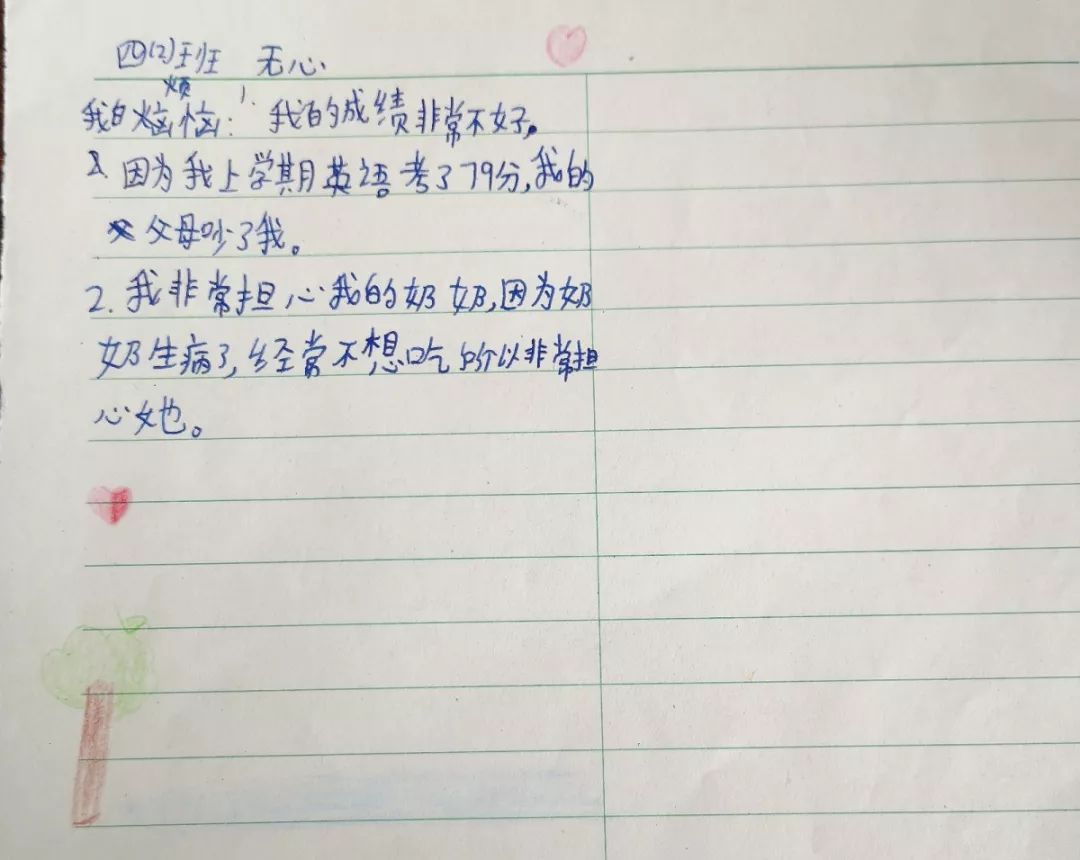 四(2)班 无心
我的烦恼：1.我的成绩非常不好。
因为我上学期英语考了79分,我的
父母吵了我。
2.我非常担心我的奶奶,因为奶
奶生病了,经常不想吃所以非常担
心她。